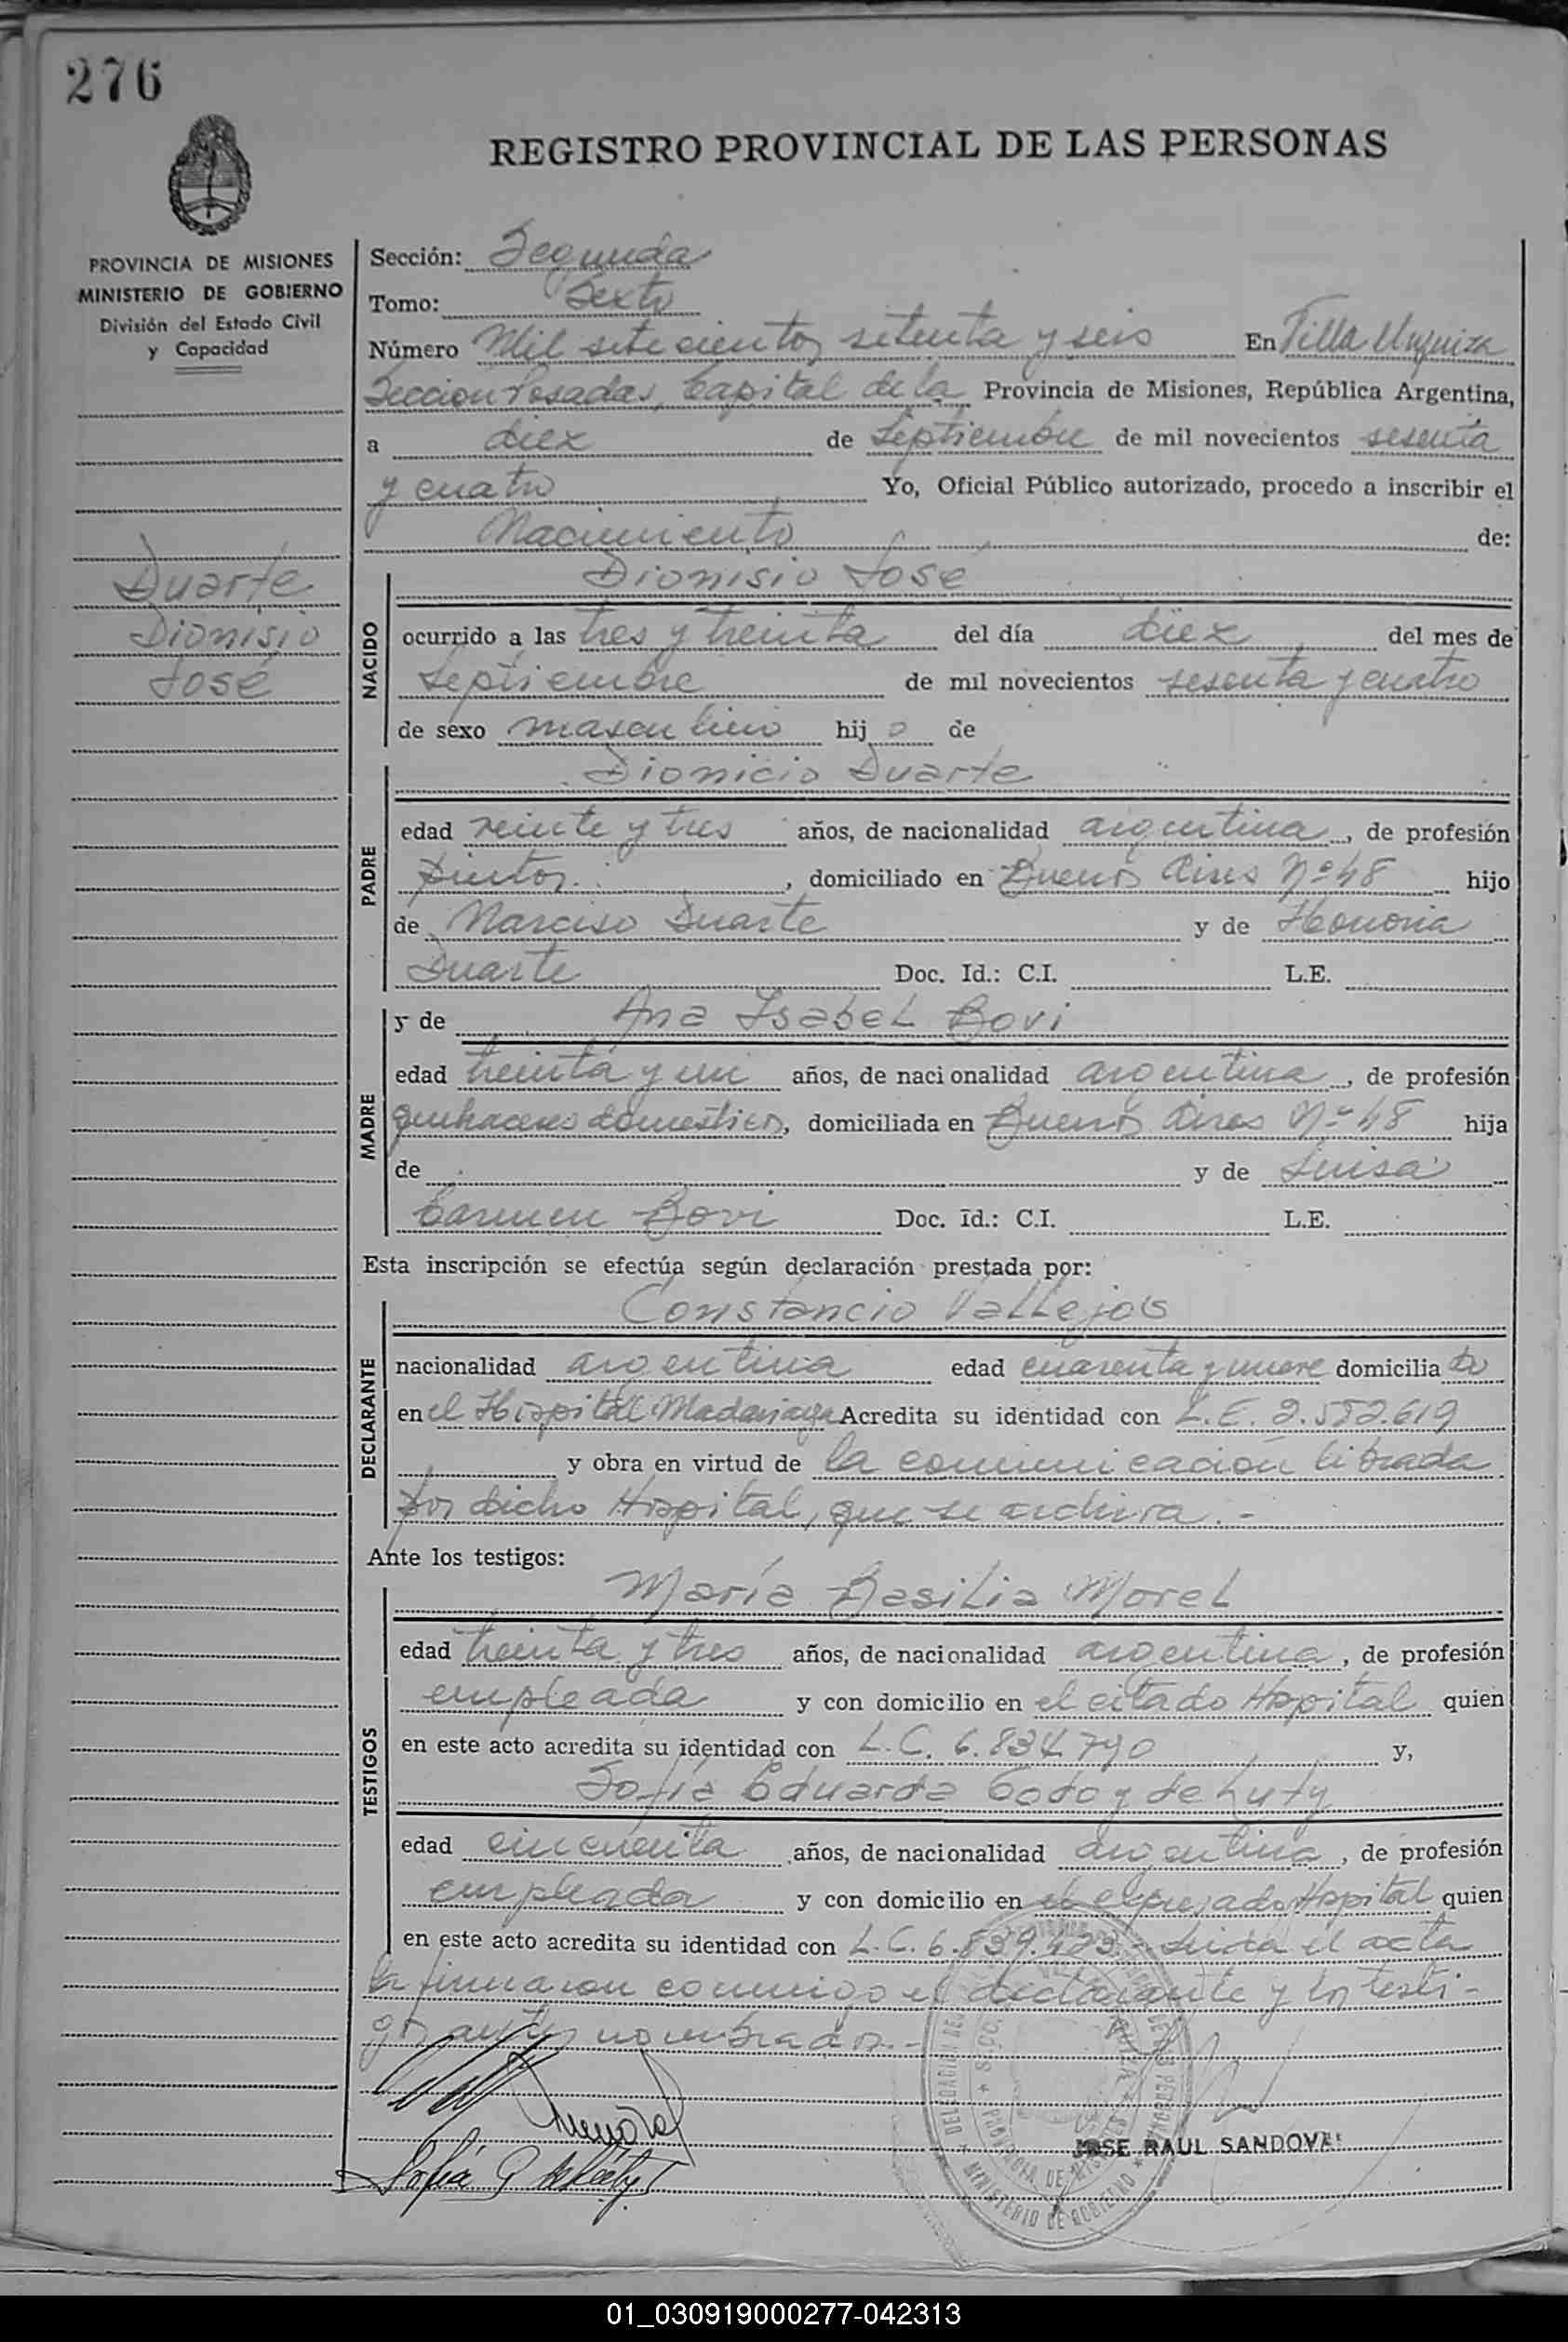 276
REGISTRO PROVINCIAL DE LAS PERSONAS
PROVINCIA DE MISIONES
MINISTERIO DE GOBIERNO
División del Estado Civil
y Capacidad
Duarte
Dionisio
José
Sección: Segunda
Tomo: Sexto
Número Mil setecientos setenta y seis En Villa Urquiza
Seccion Posadas, Capital de la Provincia de Misiones, República Argentina,
a diez de Septiembre de mil novecientos sesenta
y cuatro Yo, Oficial Público autorizado, procedo a inscribir el
Nacimiento de:
NACIDO
Dionisio José
ocurrido a las tres y treinta del día diez del mes de
Septiembre de mil novecientos sesenta y cuatro
de sexo masculino hij o de
PADRE
Dionicio Duarte
edad veinte y tres años, de nacionalidad argentina, de profesión
pintor, domiciliado en Buenos Aires Nº 48 hijo
de Narciso Duarte y de Honoria
Duarte Doc. Id.: C.I. L.E.
MADRE
y de Ana Isabel Bovi
edad treinta y un años, de nacionalidad argentina, de profesión
quehaceres domesticos, domiciliada en Buenos Aires Nº 48 hija
de y de Luisa
Carmen Bovi Doc. Id.: C.I. L.E.
Esta inscripción se efectúa según declaración prestada por:
DECLARANTE
Constancio Vallejos
nacionalidad argentina edad cuarenta y nueve domicilia do
en el Hospital Madariaga Acredita su identidad con L.E. 2.582.619
y obra en virtud de la comunicación librada
por dicho Hospital, que se archiva.-
Ante los testigos:
TESTIGOS
María Basilia Morel
edad treinta y tres años, de nacionalidad argentina, de profesión
empleada y con domicilio en el citado Hospital quien
en este acto acredita su identidad con L.C. 6.834.790 y,
Sofía Eduarda Godoy de Luty
edad cincuenta años, de nacionalidad argentina, de profesión
empleada y con domicilio en el expresado Hospital quien
en este acto acredita su identidad con L.C. 6.839.423.- Leida el acta
la firmaron conmigo el declarante y los testi-
gos antes nombrados.-
JOSE RAUL SANDOVAL
Sofía G de Luty
MINISTERIO DE GOBIERNO
PROVINCIA DE MISIONES
01_030919000277-042313